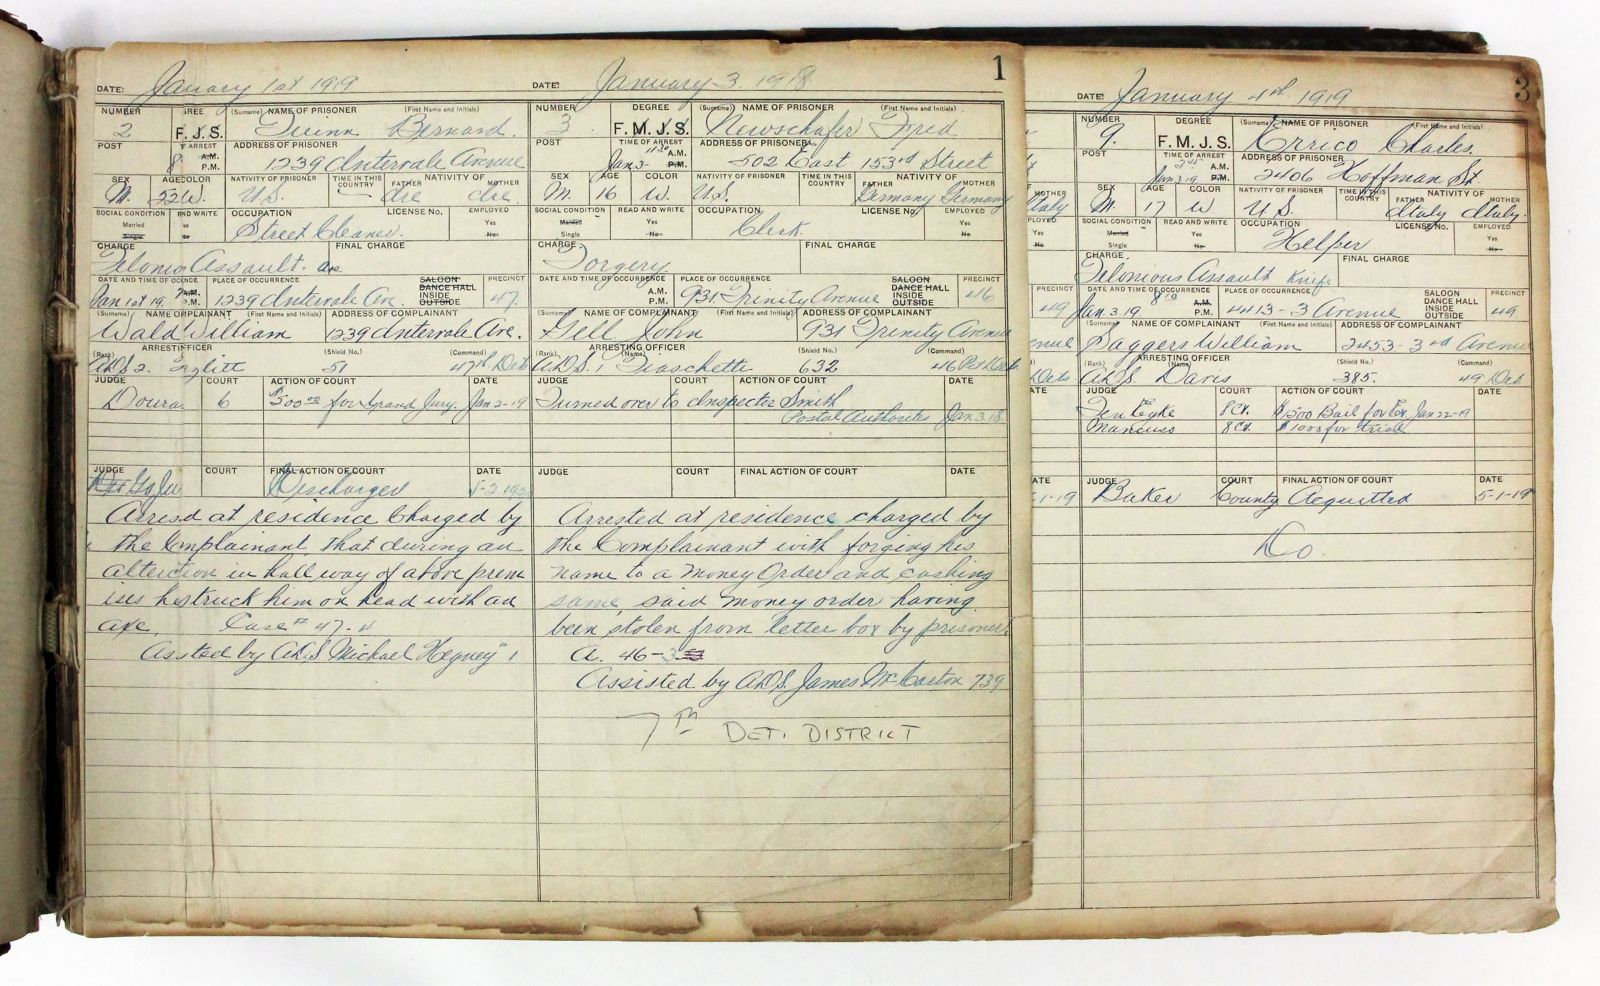 1
DATE: January 1st 1919
NUMBER DEGREE (Surname) NAME OF PRISONER (First Name and Initials)
2 F. M. J. S. Quinn Bernard.
POST TIME OF ARREST ADDRESS OF PRISONER
8 A.M. P.M. 1239 Intervale Avenue
SEX AGE COLOR NATIVITY OF PRISONER TIME IN THIS COUNTRY FATHER NATIVITY OF MOTHER
M. 52 W. U.S. - Ire Ire.
SOCIAL CONDITION READ AND WRITE OCCUPATION LICENSE No. EMPLOYED
Married Single Street Cleaner. Yes No
CHARGE FINAL CHARGE
Felonious Assault. axe
DATE AND TIME OF OCCURRENCE PLACE OF OCCURRENCE SALOON DANCE HALL INSIDE OUTSIDE PRECINCT
Jan 1st 19. A.M. P.M. 1239 Intervale Ave. 47.
(Surname) NAME OF COMPLAINANT (First Name and Initials) ADDRESS OF COMPLAINANT
Wald William 1239 Intervale Ave.
(Rank) ARRESTING OFFICER (Shield No.) (Command)
A.D.S. 2. 51 47th Det
JUDGE COURT ACTION OF COURT DATE
Douras 6 $500 00 for Grand Jury. Jan 2-19
JUDGE COURT FINAL ACTION OF COURT DATE
Discharged
Arrested at residence Charged by
the Complainant, that during an
altercation in hallway of above prem
ises he struck him on head with an
axe. Case # 47-4
Assisted by A.D.S. Michael Hegney 1
DATE: January 3 1918
NUMBER DEGREE (Surname) NAME OF PRISONER (First Name and Initials)
3 F. M. J. S. Newschafer Fred
POST TIME OF ARREST ADDRESS OF PRISONER
Jan 3- 11 30 A.M. P.M. 502 East 153rd Street
SEX AGE COLOR NATIVITY OF PRISONER TIME IN THIS COUNTRY FATHER NATIVITY OF MOTHER
M. 16 W. U.S. Germany Germany
SOCIAL CONDITION READ AND WRITE OCCUPATION LICENSE No. EMPLOYED
Married Single Yes No Clerk Yes No
CHARGE FINAL CHARGE
Forgery
DATE AND TIME OF OCCURRENCE PLACE OF OCCURRENCE SALOON DANCE HALL INSIDE OUTSIDE PRECINCT
A.M. P.M. 931 Trinity Avenue 46
(Surname) NAME OF COMPLAINANT (First Name and Initials) ADDRESS OF COMPLAINANT
Gell John 931 Trinity Avenue
(Rank) ARRESTING OFFICER (Name) (Shield No.) (Command)
A.D.S. 1 Fraschette 632 46 Pct Det
JUDGE COURT ACTION OF COURT DATE
Turned over to Inspector Smith
Postal Authorities Jan 3. 18
JUDGE COURT FINAL ACTION OF COURT DATE
Arrested at residence charged by
the Complainant with forging his
name to a money order and cashing
same, said money order having
been stolen from letter box by prisoner.
A. 46-3
Assisted by A.D.S. James McCarton 739
7th DET. DISTRICT
3
DATE: January 4th 1919
NUMBER DEGREE (Surname) NAME OF PRISONER (First Name and Initials)
9. F. M. J. S. Errico Charles.
POST TIME OF ARREST ADDRESS OF PRISONER
Jan 3 19 3 45 A.M. P.M. 2406 Hoffman St
SEX AGE COLOR NATIVITY OF PRISONER TIME IN THIS COUNTRY FATHER NATIVITY OF MOTHER
M 17 W U.S. Italy Italy.
SOCIAL CONDITION READ AND WRITE OCCUPATION LICENSE No. EMPLOYED
Married Single Yes No Helper Yes No
CHARGE FINAL CHARGE
Felonious Assault Knife
DATE AND TIME OF OCCURRENCE PLACE OF OCCURRENCE SALOON DANCE HALL INSIDE OUTSIDE PRECINCT
Jan 3. 19 8 10 A.M. P.M. 4413-3 Avenue 49
(Surname) NAME OF COMPLAINANT (First Name and Initials) ADDRESS OF COMPLAINANT
Daggers William 2453-3rd Avenue
(Rank) ARRESTING OFFICER (Name) (Shield No.) (Command)
A.D.S. Davis 385. 49 Det
JUDGE COURT ACTION OF COURT DATE
Ten Eyke 8 Ct. $1500 Bail for Ex Jan 22-19
Mancuso 8 Ct. $1000 for trial
JUDGE COURT FINAL ACTION OF COURT DATE
Baker County Acquitted 5-1-19
Do.